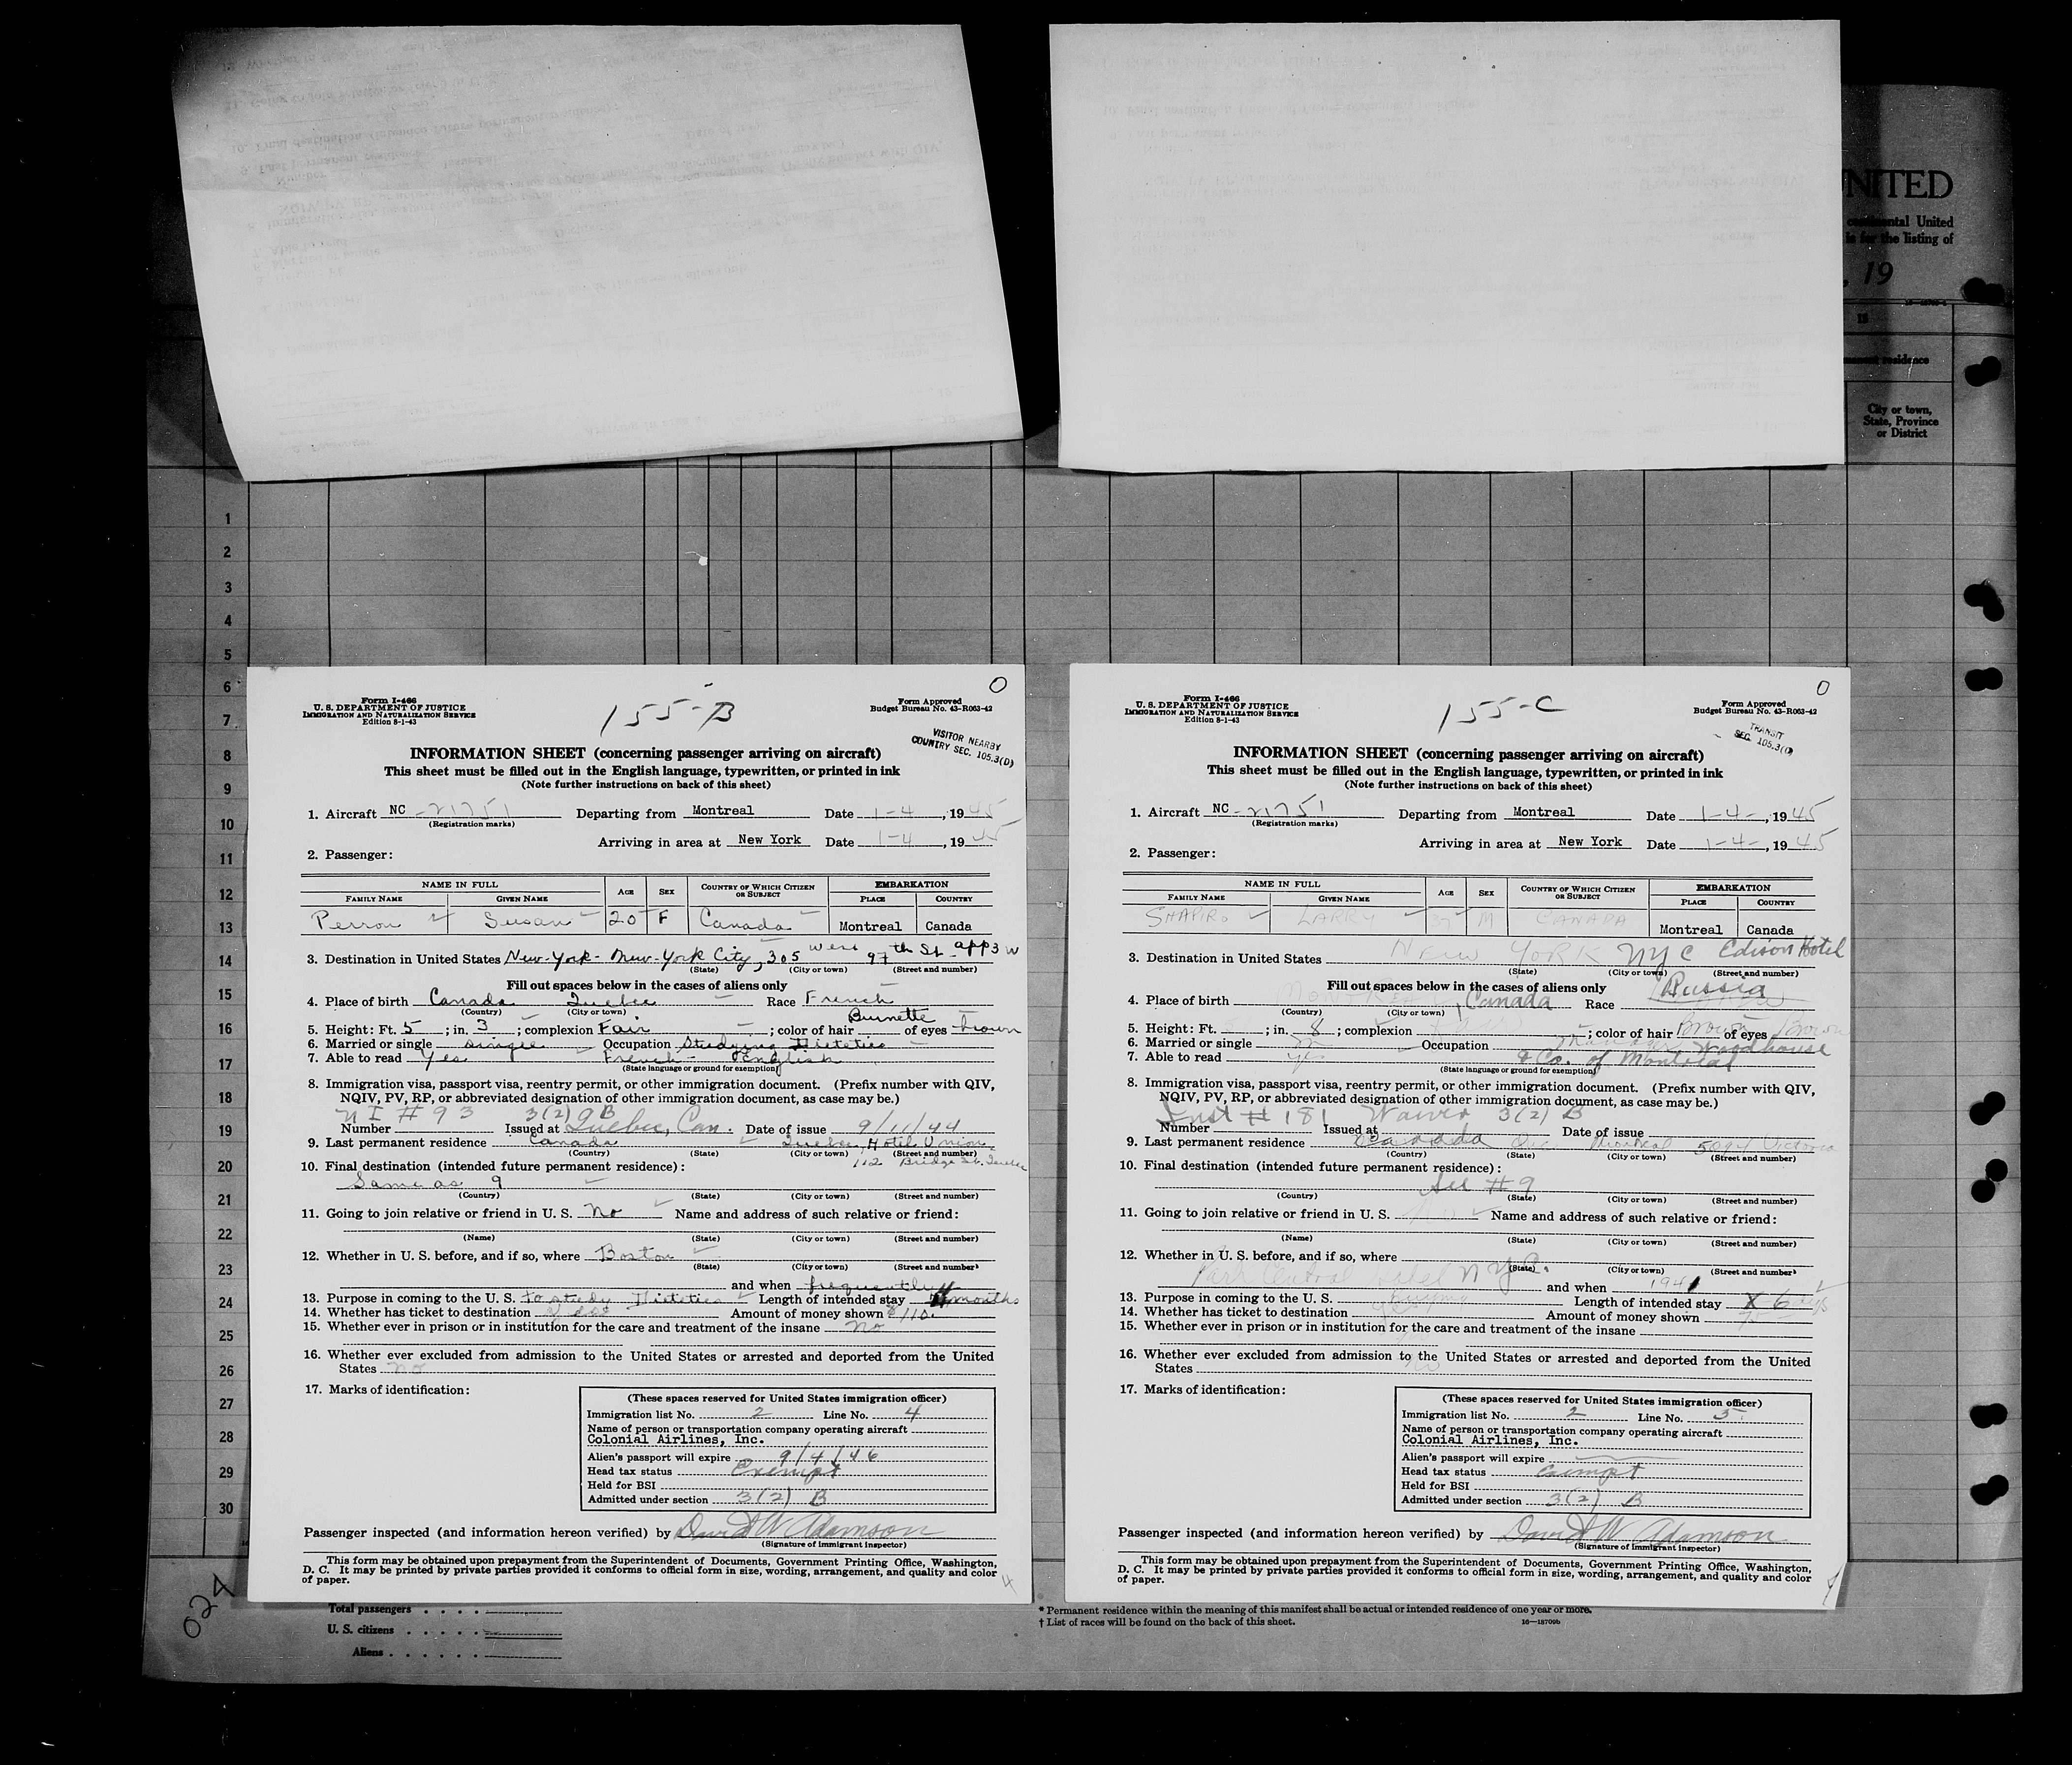 UNITED
continental United
is for the listing of
, 19
permanent residence
City or town,
State, Province
or District
1
2
3
4
5
6
7
8
9
10
11
12
13
14
15
16
17
18
19
20
21
22
23
24
25
26
27
28
29
30
Form I-466
U. S. DEPARTMENT OF JUSTICE
IMMIGRATION AND NATURALIZATION SERVICE
Edition 8-1-43
155-B
O
Form Approved
Budget Bureau No. 43-R063-42
VISITOR NEARBY
COUNTRY SEC. 105.3(D)
INFORMATION SHEET (concerning passenger arriving on aircraft)
This sheet must be filled out in the English language, typewritten, or printed in ink
(Note further instructions on back of this sheet)
1. Aircraft NC -21751 Departing from Montreal Date 1-4, 1945
(Registration marks)
Arriving in area at New York Date 1-4, 1945
2. Passenger:
NAME IN FULL AGE SEX COUNTRY OF WHICH CITIZEN OR SUBJECT EMBARKATION
FAMILY NAME GIVEN NAME PLACE COUNTRY
Perron Susan 20 F Canada Montreal Canada
3. Destination in United States New-York- New-York City, 305 West 97th St. app 3 W
(State) (City or town) (Street and number)
Fill out spaces below in the cases of aliens only
4. Place of birth Canada Quebec Race French
(Country) (City or town)
5. Height: Ft. 5; in. 3; complexion Fair; color of hair Brunette of eyes brown
6. Married or single single Occupation Studying Dietetics
7. Able to read Yes French - English
(State language or ground for exemption)
8. Immigration visa, passport visa, reentry permit, or other immigration document. (Prefix number with QIV,
NQIV, PV, RP, or abbreviated designation of other immigration document, as case may be.)
NI # 93 3(2) B
Number Issued at Quebec, Can. Date of issue 9/11/44
9. Last permanent residence Canada Quebec, Hotel Union
(Country) (State) (City or town) (Street and number)
112 Bridge St. Quebec
10. Final destination (intended future permanent residence):
Same as 9
(Country) (State) (City or town) (Street and number)
11. Going to join relative or friend in U. S. No Name and address of such relative or friend:
(Name) (State) (City or town) (Street and number)
12. Whether in U. S. before, and if so, where Boston
(State) (City or town) (Street and number)
and when frequently
13. Purpose in coming to the U. S. to study Dietetics Length of intended stay months
14. Whether has ticket to destination Amount of money shown $110.
15. Whether ever in prison or in institution for the care and treatment of the insane No
16. Whether ever excluded from admission to the United States or arrested and deported from the United
States no
17. Marks of identification:
(These spaces reserved for United States immigration officer)
Immigration list No. 2 Line No. 4
Name of person or transportation company operating aircraft
Colonial Airlines, Inc.
Alien's passport will expire 9/4/46
Head tax status Exempt
Held for BSI
Admitted under section 3(2) B
Passenger inspected (and information hereon verified) by David W Adamson
(Signature of immigrant inspector)
This form may be obtained upon prepayment from the Superintendent of Documents, Government Printing Office, Washington,
D. C. It may be printed by private parties provided it conforms to official form in size, wording, arrangement, and quality and color
of paper.
4
Form I-466
U. S. DEPARTMENT OF JUSTICE
IMMIGRATION AND NATURALIZATION SERVICE
Edition 8-1-43
155-C
O
Form Approved
Budget Bureau No. 43-R063-42
TRANSIT
SEC. 105.3(C)
INFORMATION SHEET (concerning passenger arriving on aircraft)
This sheet must be filled out in the English language, typewritten, or printed in ink
(Note further instructions on back of this sheet)
1. Aircraft NC -21751 Departing from Montreal Date 1-4-, 1945
(Registration marks)
Arriving in area at New York Date 1-4-, 1945
2. Passenger:
NAME IN FULL AGE SEX COUNTRY OF WHICH CITIZEN OR SUBJECT EMBARKATION
FAMILY NAME GIVEN NAME PLACE COUNTRY
SHAPIRO LARRY M CANADA Montreal Canada
3. Destination in United States NEW YORK NYC Edison Hotel
(State) (City or town) (Street and number)
Fill out spaces below in the cases of aliens only
4. Place of birth Montreal, Canada Race Russia
(Country) (City or town)
5. Height: Ft. ; in. 8; complexion ; color of hair Brown of eyes Brown
6. Married or single m Occupation Manager Woodhouse
7. Able to read yes & Co. of Montreal
(State language or ground for exemption)
8. Immigration visa, passport visa, reentry permit, or other immigration document. (Prefix number with QIV,
NQIV, PV, RP, or abbreviated designation of other immigration document, as case may be.)
Inst # 181 Waiver 3(2) B
Number Issued at Date of issue
9. Last permanent residence Canada Que Montreal 5094 Victoria
(Country) (State) (City or town) (Street and number)
10. Final destination (intended future permanent residence):
See #9
(Country) (State) (City or town) (Street and number)
11. Going to join relative or friend in U. S. Name and address of such relative or friend:
(Name) (State) (City or town) (Street and number)
12. Whether in U. S. before, and if so, where
(State) (City or town) (Street and number)
Park Central Hotel N.Y.C. and when 1941
13. Purpose in coming to the U. S. Buying Length of intended stay X 6 dys
14. Whether has ticket to destination yes Amount of money shown
15. Whether ever in prison or in institution for the care and treatment of the insane
16. Whether ever excluded from admission to the United States or arrested and deported from the United
States
17. Marks of identification:
(These spaces reserved for United States immigration officer)
Immigration list No. 2 Line No. 5
Name of person or transportation company operating aircraft
Colonial Airlines, Inc.
Alien's passport will expire
Head tax status Exempt
Held for BSI
Admitted under section 3(2) B
Passenger inspected (and information hereon verified) by David W Adamson
(Signature of immigrant inspector)
This form may be obtained upon prepayment from the Superintendent of Documents, Government Printing Office, Washington,
D. C. It may be printed by private parties provided it conforms to official form in size, wording, arrangement, and quality and color
of paper.
024
Total passengers . . . .
U. S. citizens . . . . .
Aliens . . . . . .
* Permanent residence within the meaning of this manifest shall be actual or intended residence of one year or more.
† List of races will be found on the back of this sheet. 16—18709b